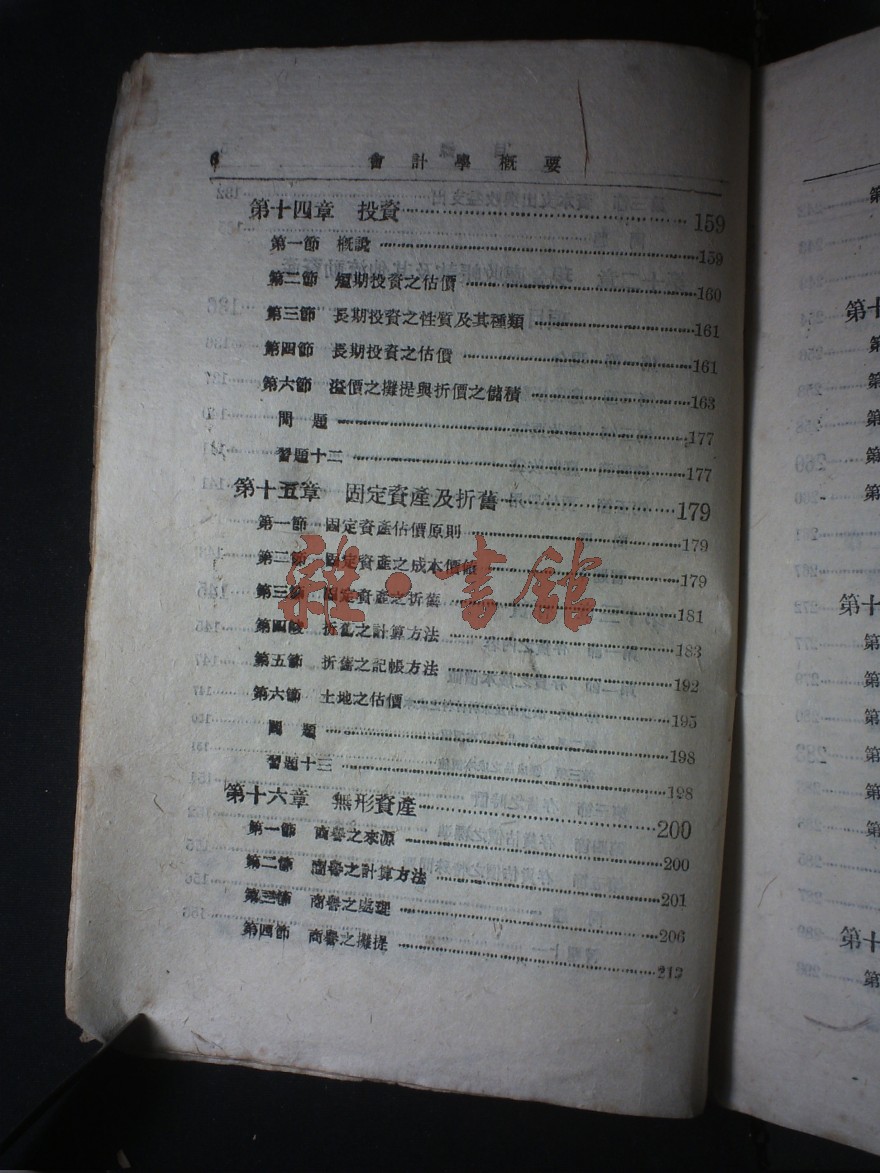 6 會計學概要
第十四章 投資 159
第一節 概說 159
第二節 短期投資之估價 160
第三節 長期投資之性質及其種類 161
第四節 長期投資之估價 161
第六節 溢價之攤提與折價之儲積 163
問題 177
習題十二 177
第十五章 固定資產及折舊 179
第一節 固定資產估價原則 179
第二節 固定資產之成本價值 179
第三節 固定資產之折舊 181
第四節 折舊之計算方法 183
第五節 折舊之記帳方法 192
第六節 土地之估價 195
問題 198
習題十三 198
第十六章 無形資產 200
第一節 商譽之來源 200
第二節 商譽之計算方法 201
第三節 商譽之處理 206
第四節 商譽之攤提 212
雜·書館